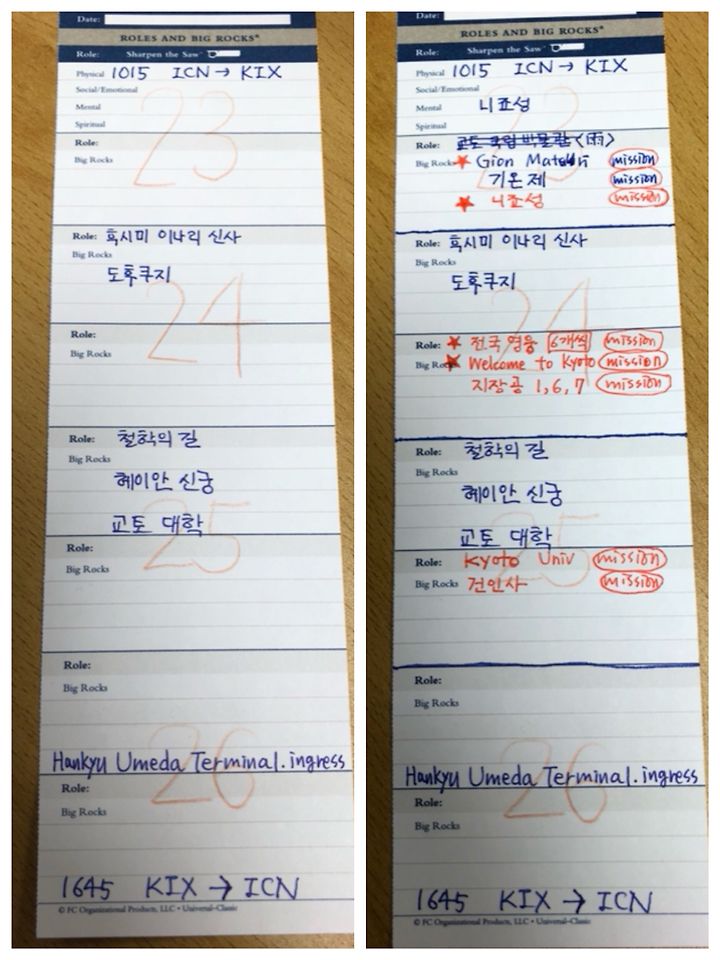 Date:
ROLES AND BIG ROCKS®
Role: Sharpen the Saw™
Physical 1015 ICN → KIX
Social/Emotional
Mental
Spiritual
23
Role:
Big Rocks
Role: 혹시미 이나리 신사
Big Rocks
도후쿠지
24
Role:
Big Rocks
Role: 철학의 길
Big Rocks
헤이안 신궁
교토 대학
25
Role:
Big Rocks
Role:
Big Rocks
Hankyu Umeda Terminal.ingress
26
Role:
Big Rocks
1645 KIX → ICN
© FC Organizational Products, LLC • Universal–Classic
Date:
ROLES AND BIG ROCKS®
Role: Sharpen the Saw™
Physical 1015 ICN → KIX
Social/Emotional
Mental 니죠성
Spiritual
23
Role: 교토 국립 박물관 <雨>
Big Rocks ★ Gion Matsuri mission
기온제 mission
★ 니죠성 mission
Role: 혹시미 이나리 신사
Big Rocks
도후쿠지
24
Role: ★ 전국영웅 6개씩 mission
Big Rocks ★ Welcome to Kyoto mission
지장공 1,6,7 mission
Role: 철학의 길
Big Rocks
헤이안 신궁
교토 대학
25
Role: Kyoto Univ mission
Big Rocks 건인사 mission
Role:
Big Rocks
Hankyu Umeda Terminal.ingress
26
Role:
Big Rocks
1645 KIX → ICN
© FC Organizational Products, LLC • Universal–Classic